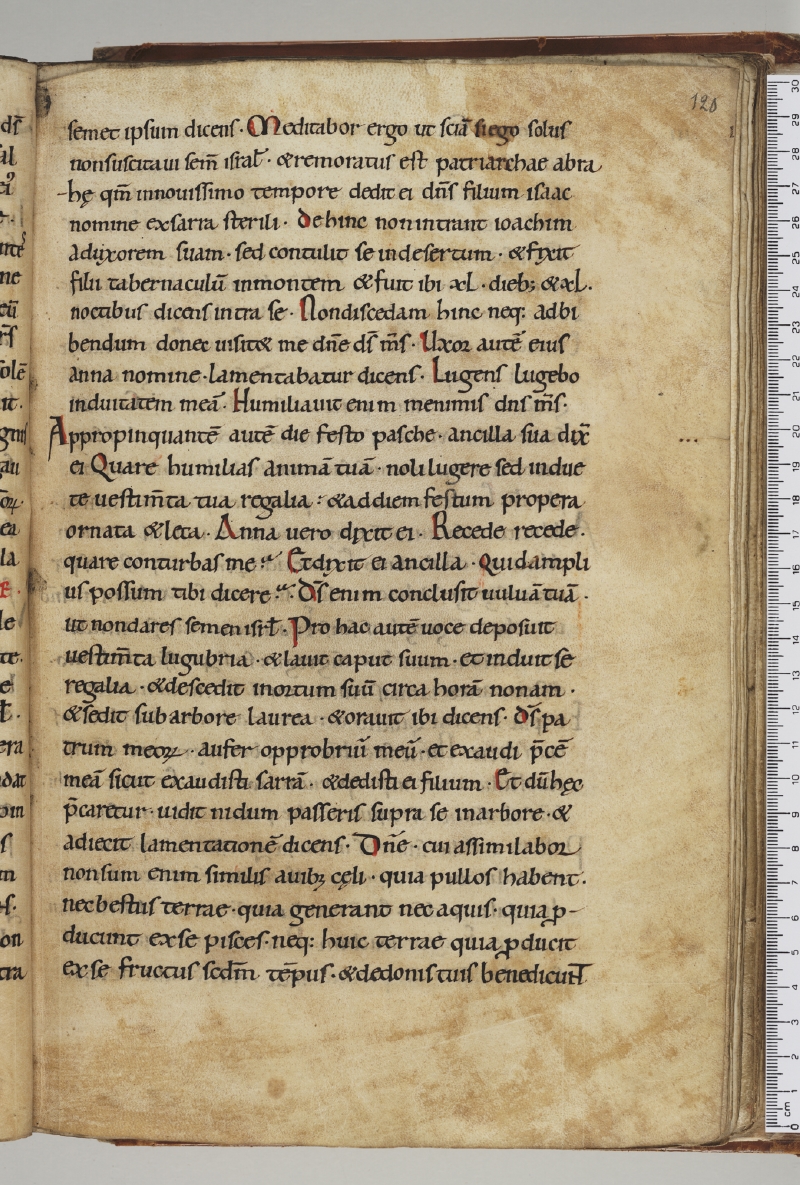 128
semet ipsum dicens · Meditabor ergo ut sciā si ego solus
nonsuscitaui sem̄ israł · &remoratus est patriarchae abra
-hę qm̄ innouissimo tempore dedit ei dn̄s filium isaac
nomine exsarra sterili · dehinc nonintrauit ioachim
aduxorem suam · sed contulit se indesertum · &fixit
filii tabernaculū inmontem &fuit ibi xl · dieb; &xl ·
noctibus dicens intra se · Nondiscedam hinc neq: adbi
bendum donec uisit& me dn̄e ds̄ m̄s · Uxor autē eius
anna nomine · lamentabatur dicens · Lugens lugebo
induitatem meā · Humiliauit enim menimis dns m̄s ·
Appropinquantē autē die festo pasche · ancilla sua dix̄
ei Quare humilias animā tuā · noli lugere sed indue
te uestim̄ta tua regalia : &addiem festum propera
ornata &leta · Anna uero dixit ei · Recede recede ·
quare conturbas me · Et dixit ei ancilla · Quid ampli
us possum tibi dicere · Ds̄ enim conclusit uuluā tuā ·
ut nondares semen isrł · Pro hac autē uoce deposuit
uestim̄ta lugubria · &lauit caput suum · et induit se
regalia · &descedit inortum suū circa horā nonam ·
&sedit subarbore laurea · &orauit ibi dicens · ds̄ pa
trum meoꝝ · aufer opprobriū meū · et exaudi p̄cē
meā sicut exaudisti sarrā · &dedisti ei filium · Et dū hęc
p̄caretur · uidit nidum passeris supra se inarbore · &
adiecit lamentationē dicens · Dn̄e · cui assimilabor
nonsum enim similis auib; cęli · quia pullos habent ·
nec bestiis terrae · quia generant nec aquis · quia ꝓ-
ducunt exse pisces · neq: huic terrae quia ꝓducit
exse fructus scdm̄ tēpus · &dedonis tuis benedicunt